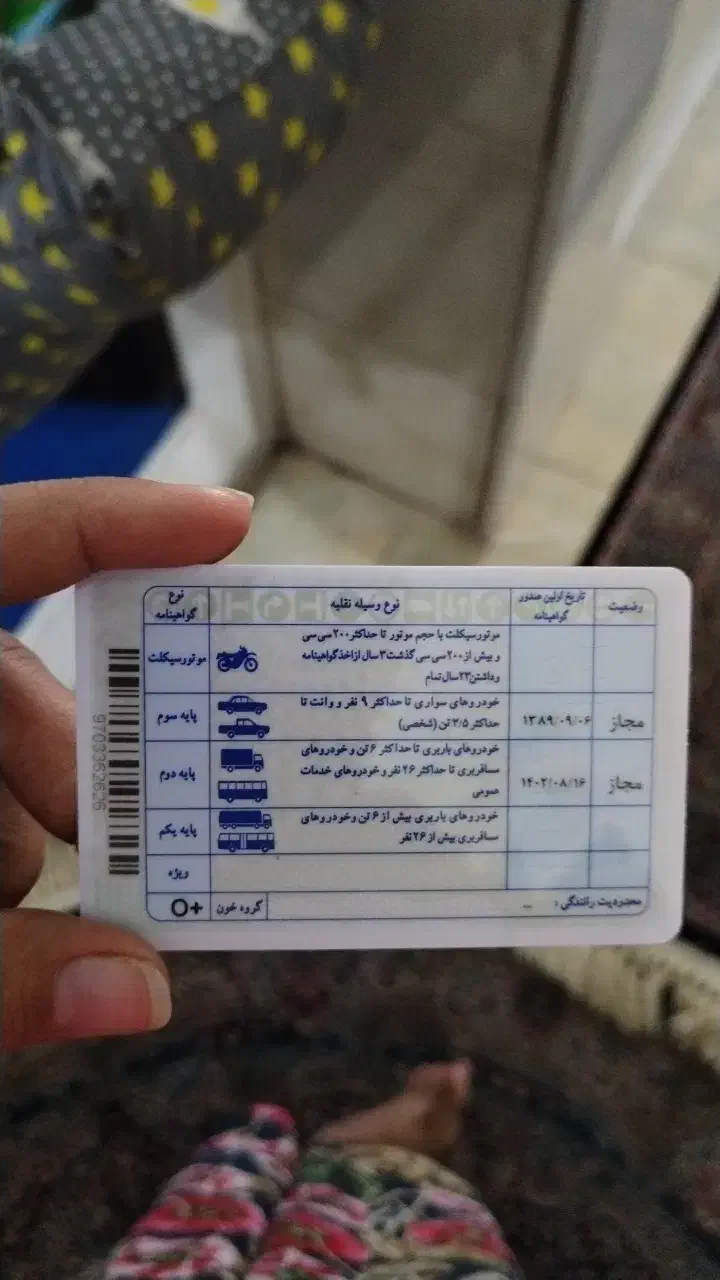 نوع گواهینامه
نوع وسیله نقلیه
تاریخ اولین صدور گواهینامه
وضعیت
موتورسیکلت
موتورسیکلت با حجم موتور تا حداکثر ۲۰۰ سی سی
و بیش از ۲۰۰ سی سی گذشت ۳ سال از اخذ گواهینامه
و داشتن ۲۳ سال تمام
پایه سوم
خودروهای سواری تا حداکثر ۹ نفر و وانت تا
حداکثر ۳/۵ تن (شخصی)
۱۳۸۹/۰۹/۰۶
مجاز
پایه دوم
خودروهای باربری تا حداکثر ۶ تن و خودروهای
مسافربری تا حداکثر ۲۶ نفر و خودروهای خدمات
عمومی
۱۴۰۲/۰۸/۱۶
مجاز
پایه یکم
خودروهای باربری بیش از ۶ تن و خودروهای
مسافربری بیش از ۲۶ نفر
ویژه
O+
گروه خون
محدودیت رانندگی : --